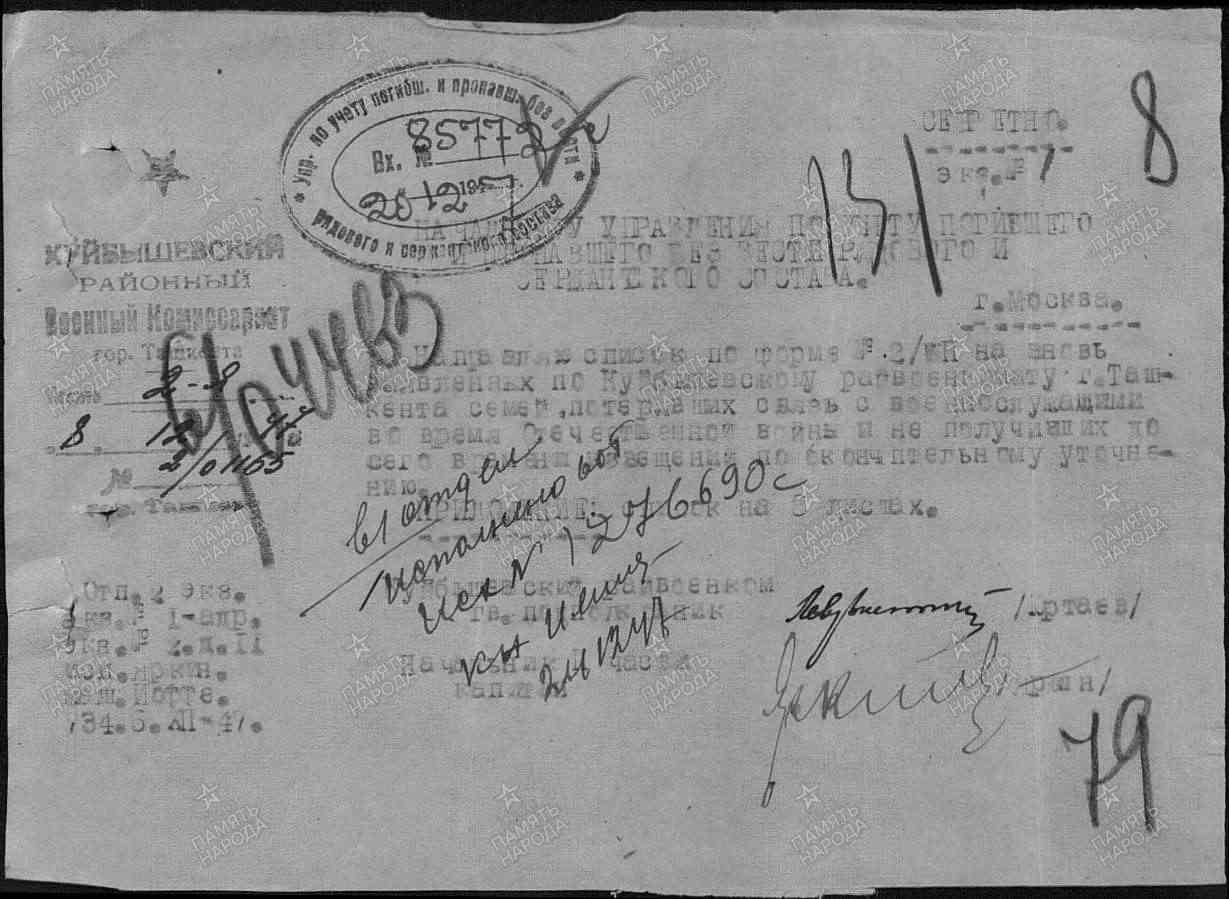 8
СЕКРЕТНО.
экз.№ 1
Упр. по учету погибш. и пропавш. без вести
рядового и сержантского состава
Вх. № 85772
20 12 1947 г.
131
НАЧАЛЬНИКУ УПРАВЛЕНИЯ ПО УЧЕТУ ПОГИБШЕГО
И ПРОПАВШЕГО БЕЗ ВЕСТИ РЯДОВОГО И
СЕРЖАНТСКОГО СОСТАВА.
г.Москва.
КУЙБЫШЕВСКИЙ
РАЙОННЫЙ
Военный Комиссариат
гор. Ташкента
8
№ 2/01165
гор. Ташкент
Направляю список по форме №.2/БП на вновь
заявленных по Куйбышевскому райвоенкомату г.Таш-
кента семей,потерявших связь с военнослужащими
во время Отечественной войны и не получивших до
сего времени извещений по окончательному уточне-
нию.
ПРИЛОЖЕНИЕ: список на 8 листах.
в 1 отдел
исполнено
исх № 1276690с
24 12 47
Куйбышевский райвоенком
гв. подполковник
/Артаев/
Начальник части
капитан
Отп.2 экз.
экз.№ 1-адр.
экз.№ 2.д.II
исп.Яркин.
734.6.XII-47.
79
ПАМЯТЬ
НАРОДА